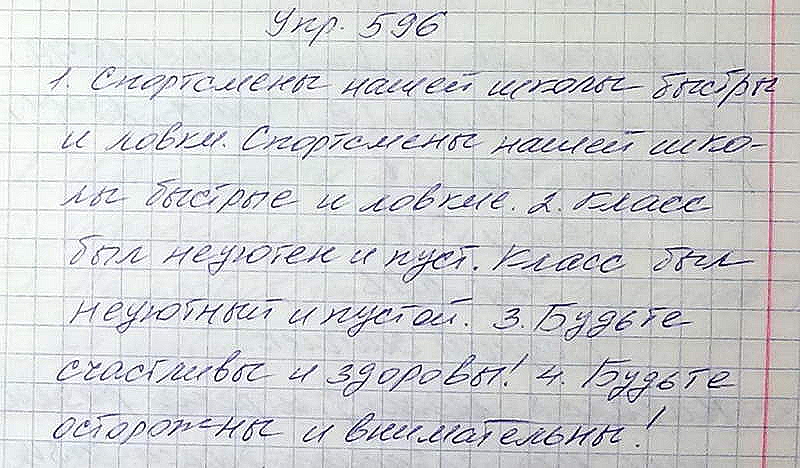 Упр. 596
1. Спортсмены нашей школы быстры
и ловки. Спортсмены нашей шко-
лы быстрые и ловкие. 2. Класс
был неуютен и пуст. Класс был
неуютный и пустой. 3. Будьте
счастливы и здоровы! 4. Будьте
осторожны и внимательны!